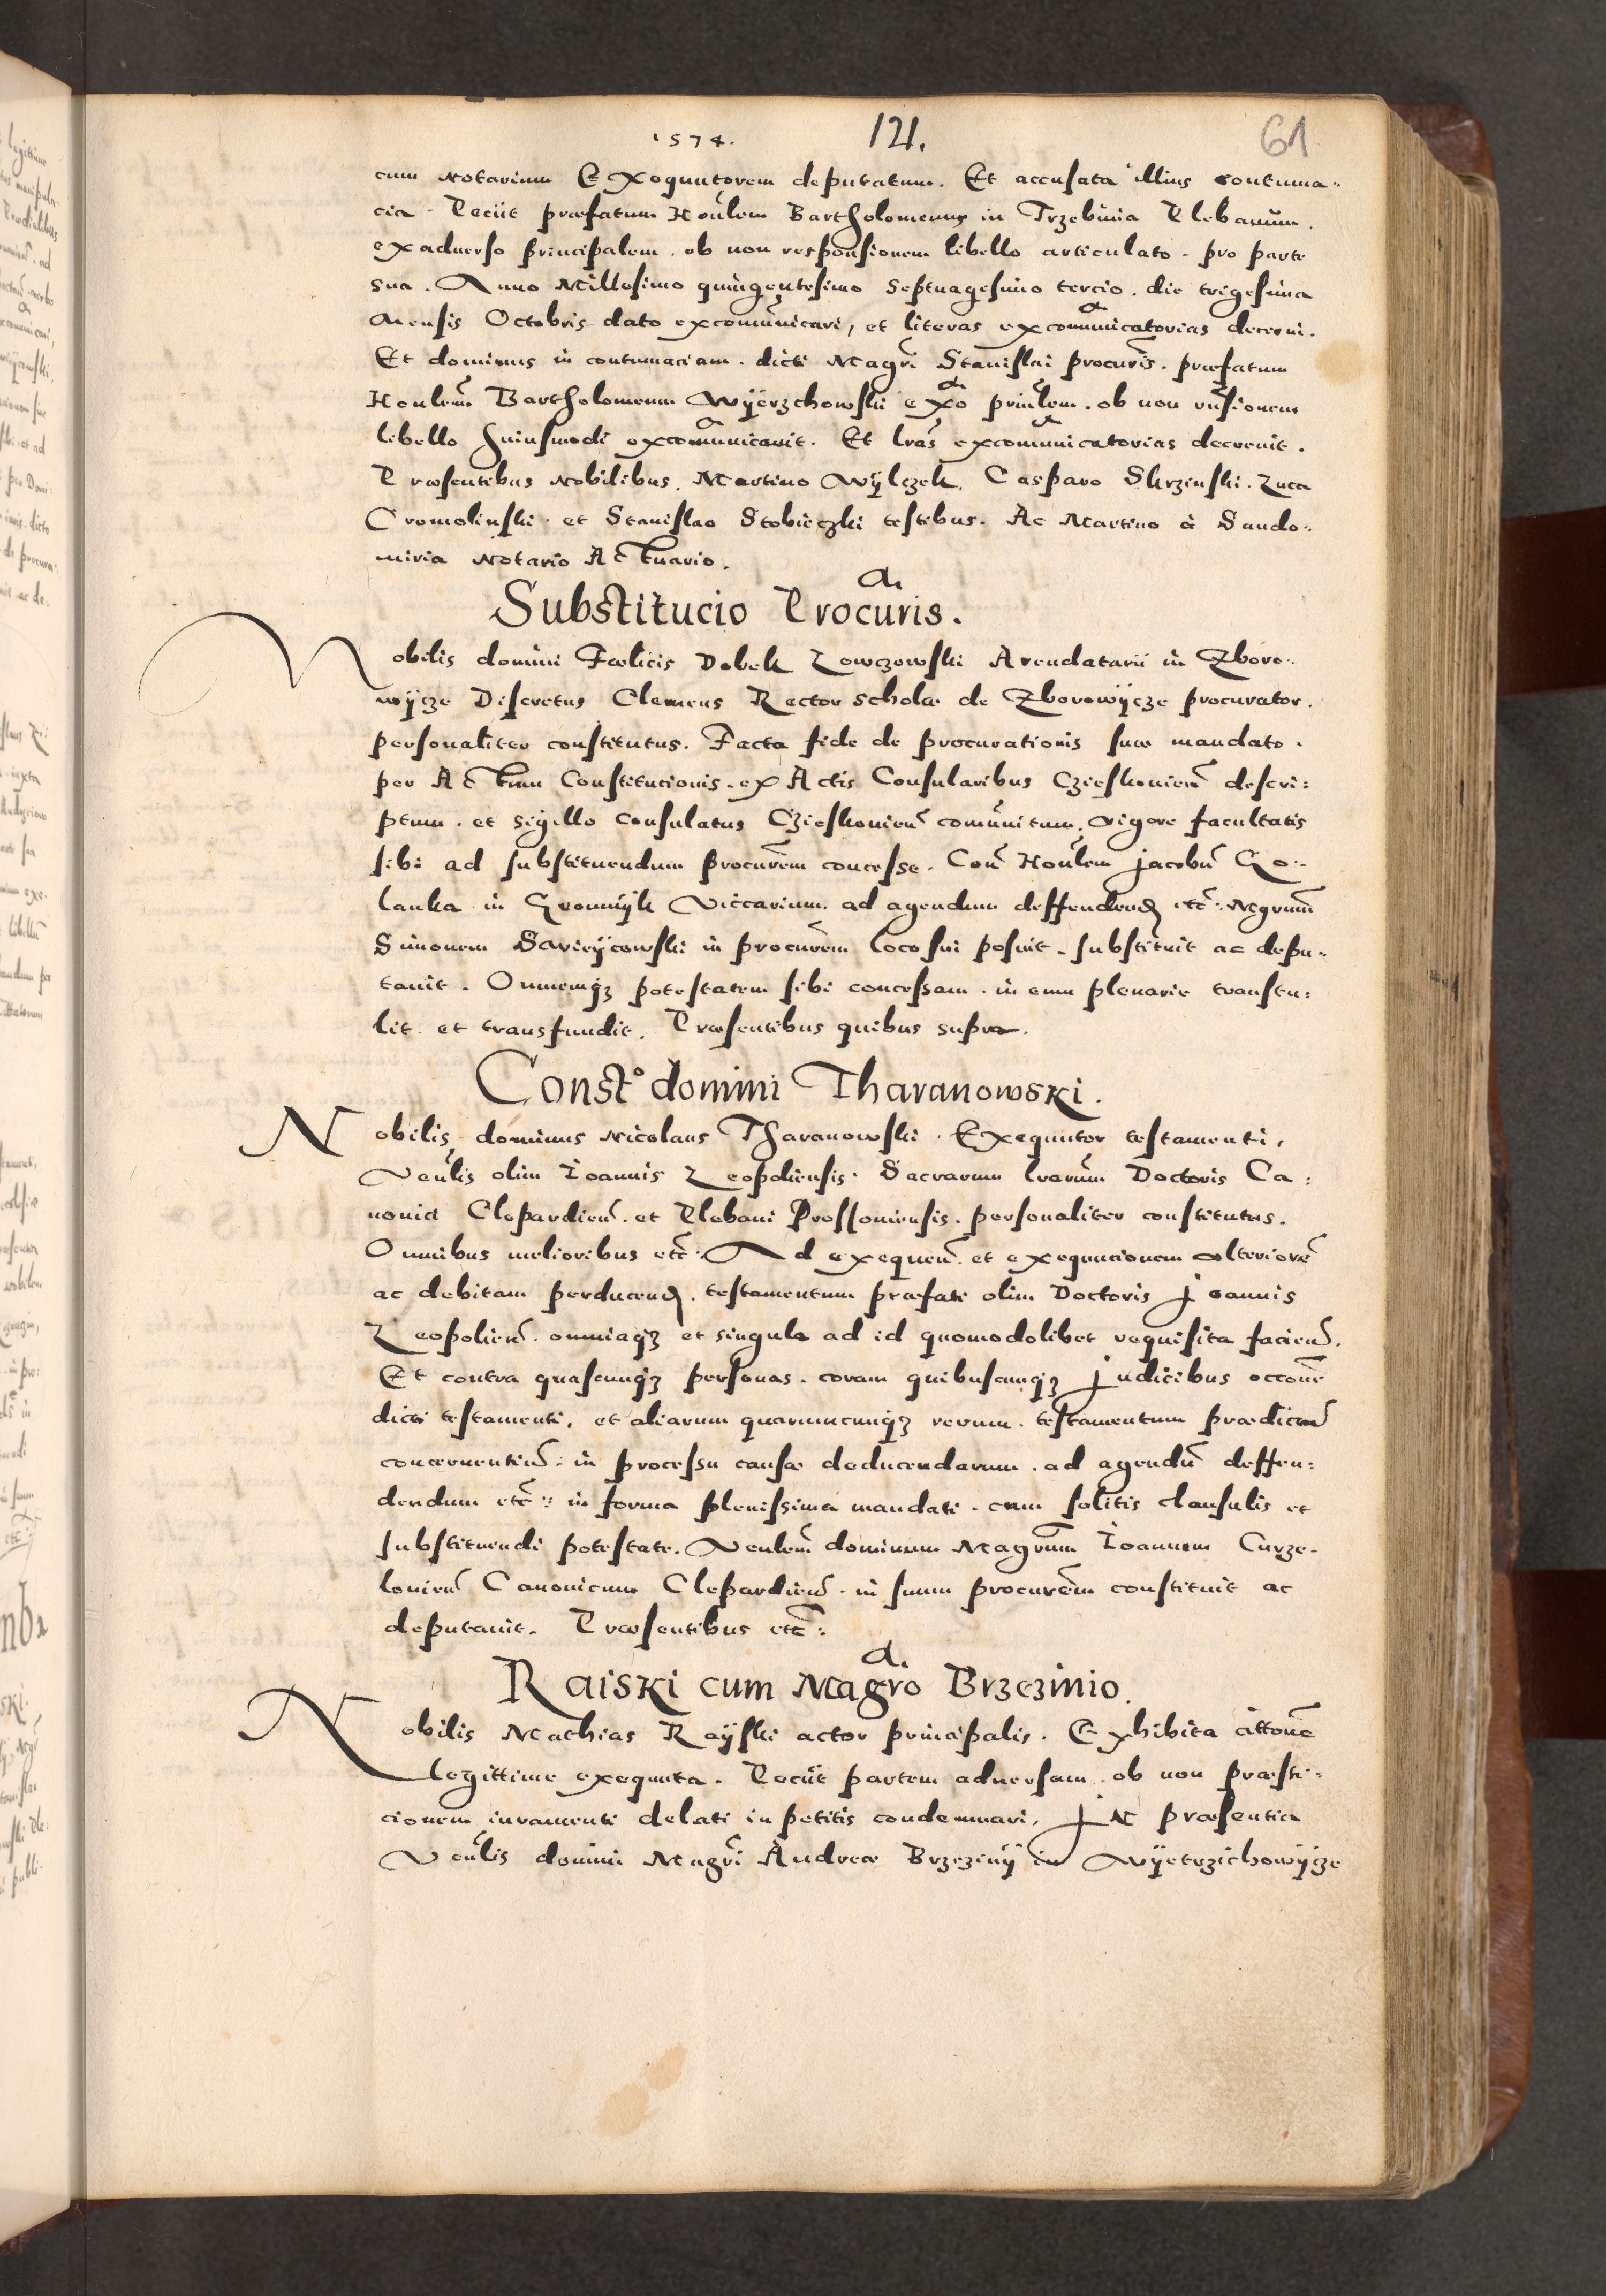 1574. 121. 61
cum Notarium Exequutorem deputatum. Et accusata illius contuma-
cia. Peciit præfatum Honlem Bartholomeum in Trzebinia Plebanum.
ex aduerso principalem. ob non responsionem libello articulato. pro parte
sua. Anno Millesimo quingentesimo Septuagesimo tercio. die trigesima
Mensis Octobris dato excomunicari, et literas excomunicatorias decerni.
Et dominus in contumaciam. dicti Magri Stanislai procuris. præfatum
Honlem Bartholomeum Wyerzchowski exo prinlem. ob non rnsionem
libello huiusmodi excomunicauit. Et lras excomunicatorias decreuit.
Præsentibus Nobilibus. Martino Wylczek. Casparo Skrzinski. Luca
Cromolinski. et Stanislao Stobieczki testibus. Ac Martino à Sando-
miria Notario Actuario.
Substitucio Procuris.
Nobilis domini Fœlicis Dobek Lowczowski Arendatarii in Zboro-
wycze Discretus Clemens Rector scholæ de Zborowycze procurator.
personaliter constitutus. Facta fide de procurationis suæ mandato.
per Actum Constitucionis. ex Actis Consularibus Czieskonien descri:
ptum. et sigillo Consulatus Czieskonien comunitum. vigore facultatis
sibi ad substituendum procurem concesse. Con Honlem Jacobu Go-
lanka in Gromnyk Viccarium. ad agendum deffendend etc: Magrum
Simonem Savieycowski in procurem loco sui posuit. substituit ac depu-
tauit. Omnemq3 potestatem sibi concessam. in eum plenarie transtu:
lit et transfundit. Præsentibus quibus supra.
Consto domini Tharanowski.
Nobilis dominus Nicolaus Tharanowski. Exequutor testamenti,
Venlis olim Ioannis Leopoliensis. Sacrarum lrarum Doctoris Ca:
nonici Clepardien. et Plebani Prossouiensis. personaliter constitutus.
Omnibus melioribus etc. Ad exequen. et exequucionem vlteriore
ac debitam perducend. testamentum præfati olim Doctoris Joannis
Leopolien. omniaq3 et singula ad id quomodolibet requisita facien.
Et contra quascunq3 personas. coram quibuscunq3 Judicibus occone
dicti testamenti, et aliarum quarumcunq3 rerum. testamentum prædictum
concernentiu. in processu causæ deducendarum. ad agendu deffen:
dendum etc: in forma plenissima mandati. cum solitis clausulis et
substituendi potestate. Venlem dominum Magrum Ioannem Curze-
lonien Canonicum Clepardien. in suum procurem constituit ac
deputauit. Præsentibus etc:
Raiski cum Magro Brzezinio.
Nobilis Mathias Rayski actor principalis. Exhibita cittone
legittime exequuta. Peciit partem aduersam. ob non præsti:
cionem iuramenti delati in petitis condemnari. In præsentia
Venlis domini Magri Andreæ Brzeziny in Wyetrzichowycze